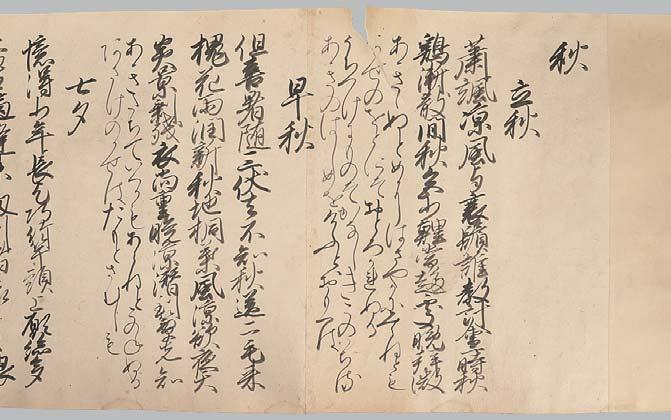 秋
立秋
蕭颯凉風与衰鬢誰教計會一時秋
鷄漸散間秋色少鯉常趨處晩聲微
あききぬとめにはさやかにみえねとも
かせのおとにそおとろかれぬる
うちつけにものそかなしきこのはちる
あきのはしめをけふとおもへは
早秋
但喜暑随三伏去不知秋送二毛来
槐花雨潤新秋地桐葉風凉欲夜天
炎景剰残衣尚重晩凉潜到簟先知
あきたちていくかもあらねとこのねぬる
あさけのかせはたもとさむしも
七夕
憶得少年長乞巧竹竿頭上願絲多